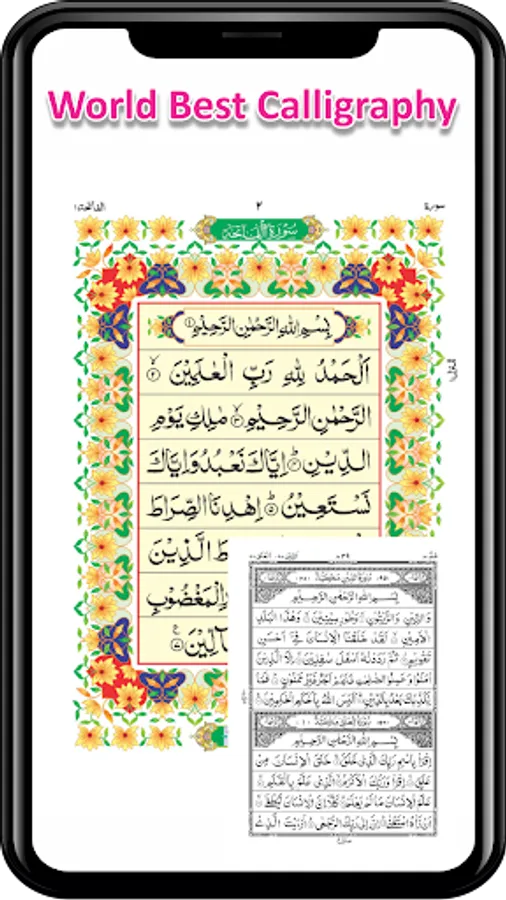 World Best Calligraphy
سورة
٢
سُوْرَةُ الْفَاتِحَةِ
بِسْمِ اللّٰهِ الرَّحْمٰنِ الرَّحِيْمِ ۝١
اَلْحَمْدُ لِلّٰهِ رَبِّ الْعٰلَمِيْنَ ۝٢
الرَّحْمٰنِ الرَّحِيْمِ ۝٣ مٰلِكِ يَوْمِ
الدِّيْنِ ۝٤ اِيَّاكَ نَعْبُدُ وَاِيَّاكَ
نَسْتَعِيْنُ ۝٥ اِهْدِنَا الصِّرَاطَ
الَّذِيْنَ
الْمَغْضُوْبِ
بِسْمِ اللّٰهِ الرَّحْمٰنِ الرَّحِيْمِ
وَالتِّيْنِ وَالزَّيْتُوْنِ وَطُوْرِ سِيْنِيْنَ وَهٰذَا الْبَلَدِ
الْاَمِيْنِ لَقَدْ خَلَقْنَا الْاِنْسَانَ فِيْٓ اَحْسَنِ
تَقْوِيْمٍ ثُمَّ رَدَدْنٰهُ اَسْفَلَ سٰفِلِيْنَ اِلَّا الَّذِيْنَ
اٰمَنُوْا وَعَمِلُوا الصّٰلِحٰتِ فَلَهُمْ اَجْرٌ غَيْرُ مَمْنُوْنٍ فَمَا
يُكَذِّبُكَ بَعْدُ بِالدِّيْنِ اَلَيْسَ اللّٰهُ بِاَحْكَمِ الْحٰكِمِيْنَ
بِسْمِ اللّٰهِ الرَّحْمٰنِ الرَّحِيْمِ
اِقْرَاْ بِاسْمِ رَبِّكَ الَّذِيْ خَلَقَ خَلَقَ الْاِنْسَانَ مِنْ
عَلَقٍ اِقْرَاْ وَرَبُّكَ الْاَكْرَمُ الَّذِيْ عَلَّمَ بِالْقَلَمِ
عَلَّمَ الْاِنْسَانَ مَا لَمْ يَعْلَمْ كَلَّآ اِنَّ الْاِنْسَانَ لَيَطْغٰٓى
اَنْ رَّاٰهُ اسْتَغْنٰى اِنَّ اِلٰى رَبِّكَ الرُّجْعٰى اَرَءَيْتَ الَّذِيْ